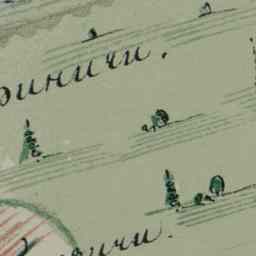 риничи.
ичи.